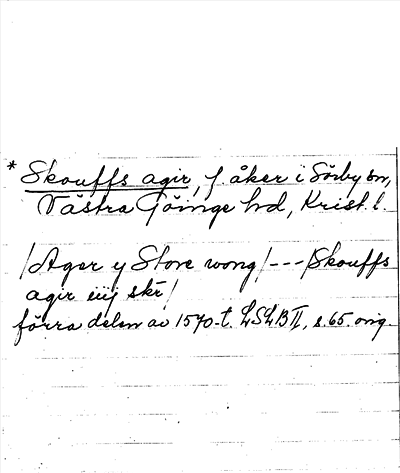 * Skouffs agir, f. åker i Sörby sn,
Västra Göinge hd, Krist. l.
/Ager y Store wong/ --- /Skouffs
agir iiij skr/
förra delen av 1570-t. LSLB II, s. 65. orig.